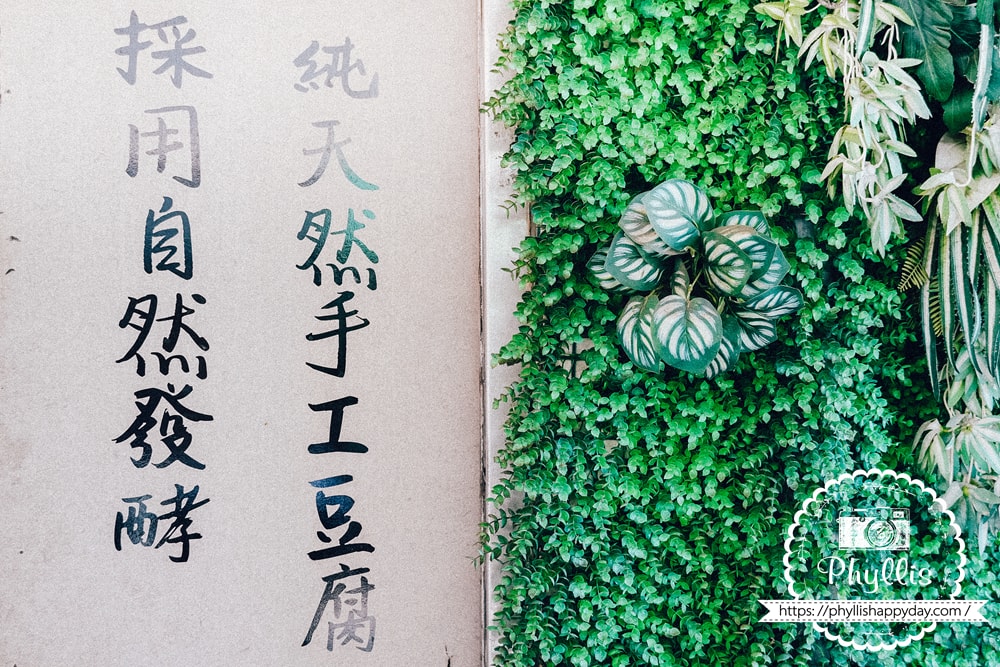 純天然手工豆腐
採用自然發酵
Phyllis
https://phyllishappyday.com /